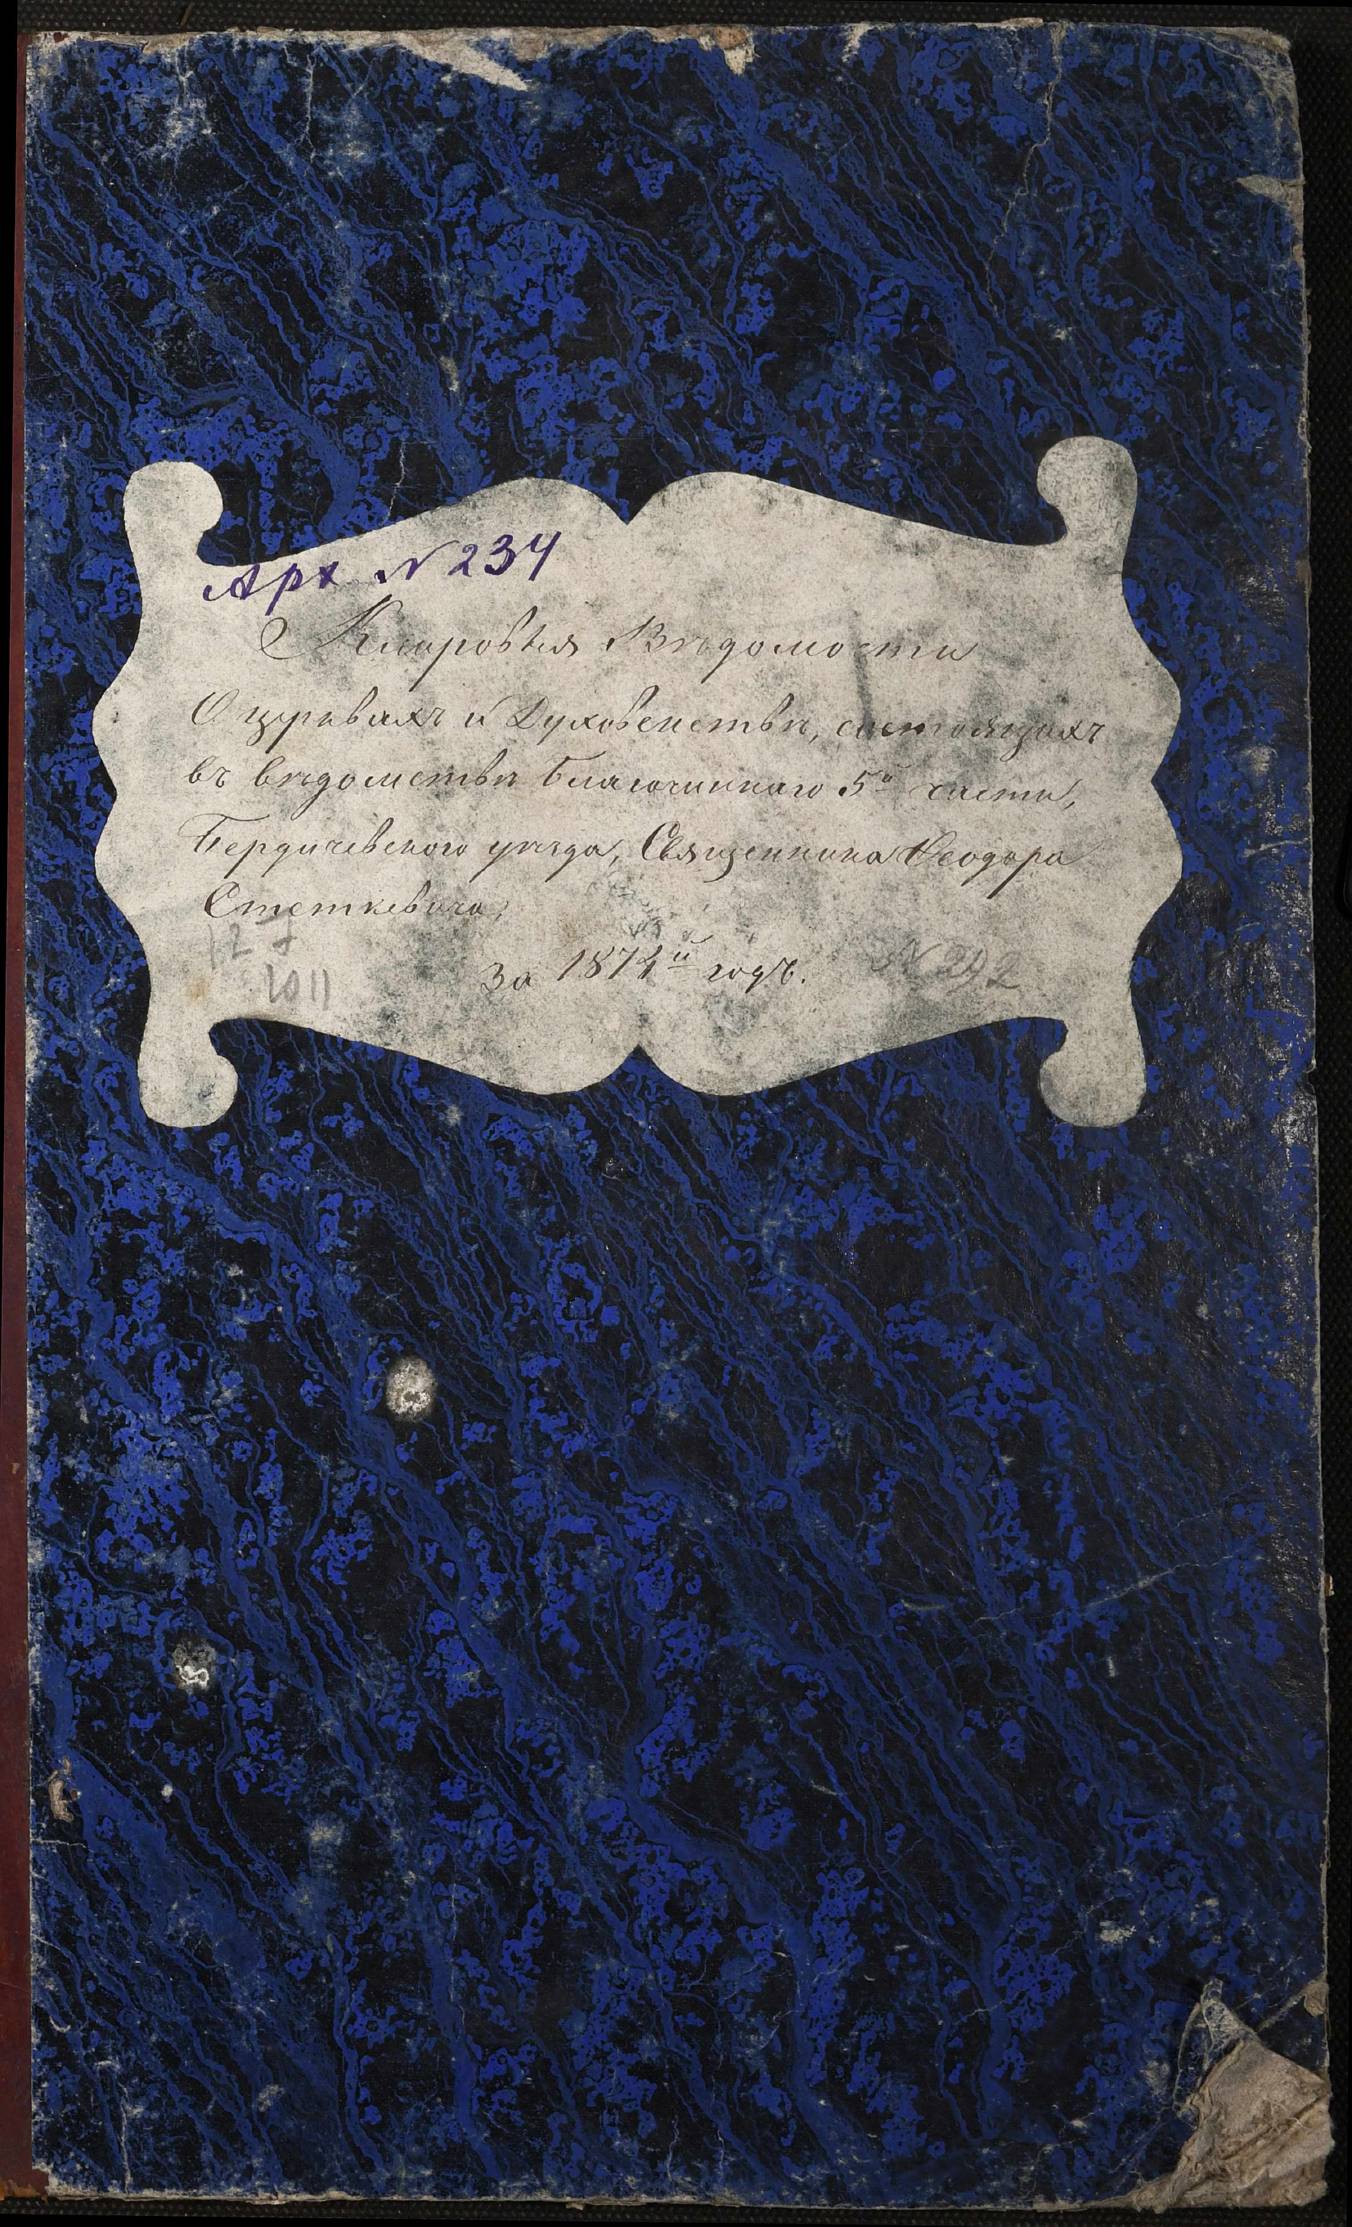 Арх. №234
Клировыя Вѣдомости
О церквахъ и Духовенствѣ, состоящихъ
въ вѣдомствѣ Благочиннаго 5й части,
Бердичевского уѣзда, Священника Ѳеодора
Стеткевича,
За 1874й годъ.
№ 292
127
1011